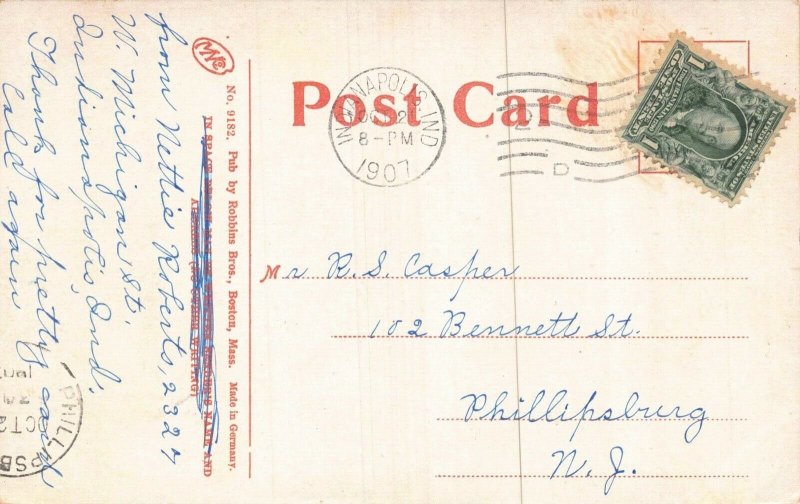 Post Card
INDIANAPOLIS, IND
8-PM
1907
D
1
1
Mr R. S. Casper
102 Bennett St.
Phillipsburg
N. J.
No. 9182. Pub by Robbins Bros., Boston, Mass. Made in Germany.
IN SPACE
NAME AND
from Nettie Roberts, 2327
W. Michigan St.
Indianapolis, Ind.
Thanks for pretty card
Call again
PHILLIPSB
OCT 2